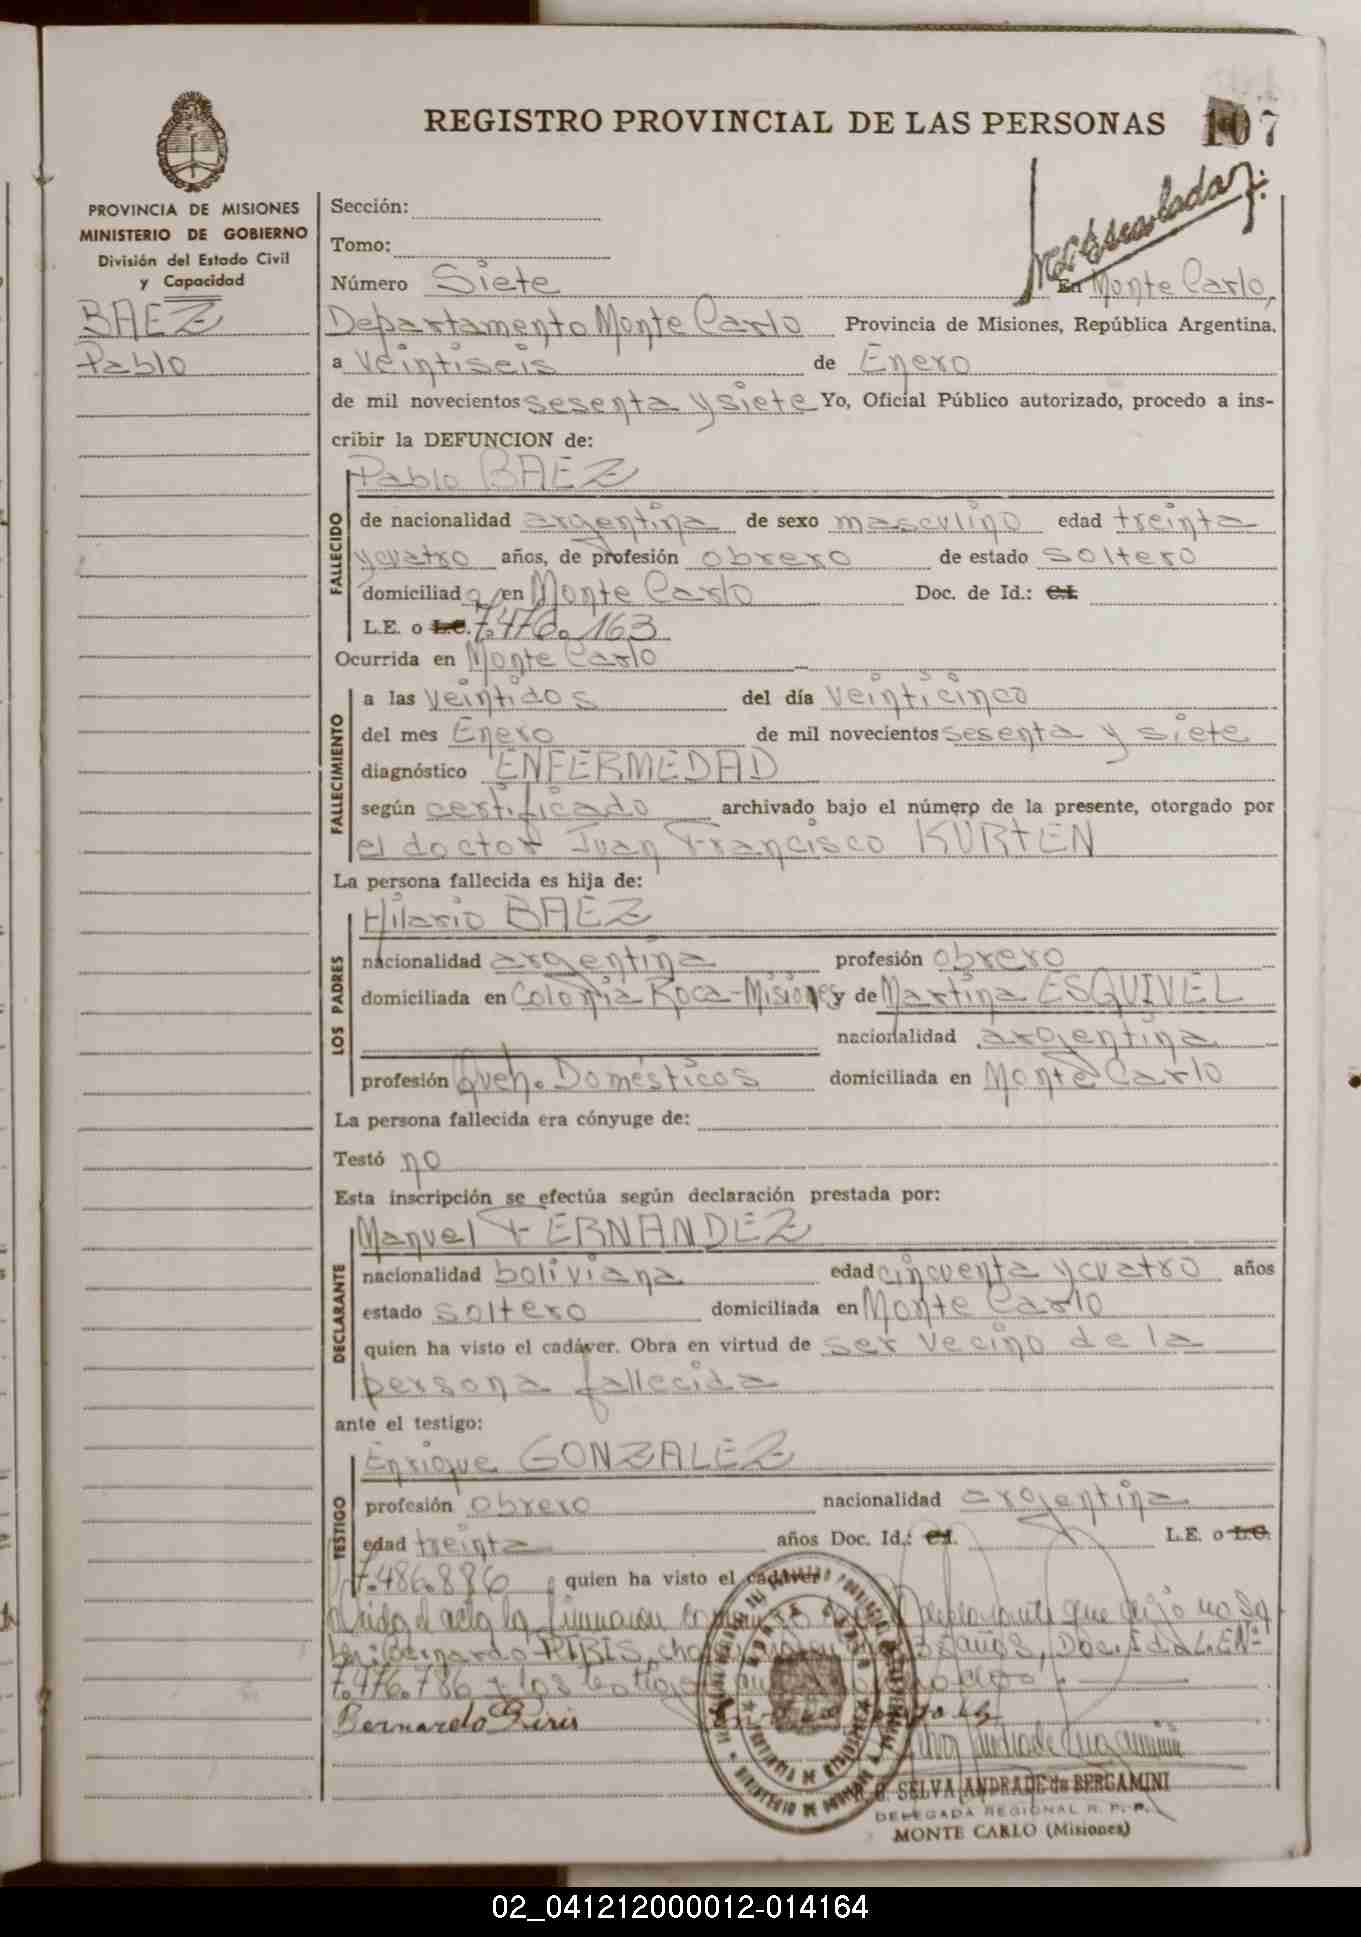 REGISTRO PROVINCIAL DE LAS PERSONAS 107
PROVINCIA DE MISIONES
MINISTERIO DE GOBIERNO
División del Estado Civil
y Capacidad
BAEZ
Pablo
Sección:
Tomo:
Número Siete En Monte Carlo,
Departamento Monte Carlo Provincia de Misiones, República Argentina,
a veintiseis de Enero
de mil novecientos sesenta y siete Yo, Oficial Público autorizado, procedo a ins-
cribir la DEFUNCION de:
Pablo BAEZ
FALLECIDO
de nacionalidad argentina de sexo masculino edad treinta
y cuatro años, de profesión obrero de estado soltero
domiciliado en Monte Carlo Doc. de Id.: C.I.
L.E. o L.C. 7.476.163
Ocurrida en Monte Carlo
FALLECIMIENTO
a las veintidos del día veinticinco
del mes Enero de mil novecientos sesenta y siete
diagnóstico ENFERMEDAD
según certificado archivado bajo el número de la presente, otorgado por
el doctor Juan Francisco KURTEN
La persona fallecida es hija de:
LOS PADRES
Hilario BAEZ
nacionalidad argentina profesión obrero
domiciliada en Colonia Roca-Misiones y de Martina ESQUIVEL
nacionalidad argentina
profesión Queh. Domésticos domiciliada en Monte Carlo
La persona fallecida era cónyuge de:
Testó no
Esta inscripción se efectúa según declaración prestada por:
DECLARANTE
Manuel FERNANDEZ
nacionalidad boliviana edad cincuenta y cuatro años
estado soltero domiciliada en Monte Carlo
quien ha visto el cadáver. Obra en virtud de ser vecino de la
persona fallecida
ante el testigo:
TESTIGO
Enrique GONZALEZ
profesión obrero nacionalidad argentina
edad treinta años Doc. Id.: C.I. L.E. o L.C.
7.486.886, quien ha visto el cadáver
Leida el acta la firman declarante que dijo no sa
ber Bernardo PIRIS, 38 años, Doc. Id. L.EN=
7.476.786 y los testigos
Bernardo Piris
G. SELVA ANDRADE de BERGAMINI
DELEGADA REGIONAL R. P. P.
MONTE CARLO (Misiones)
02_041212000012-014164